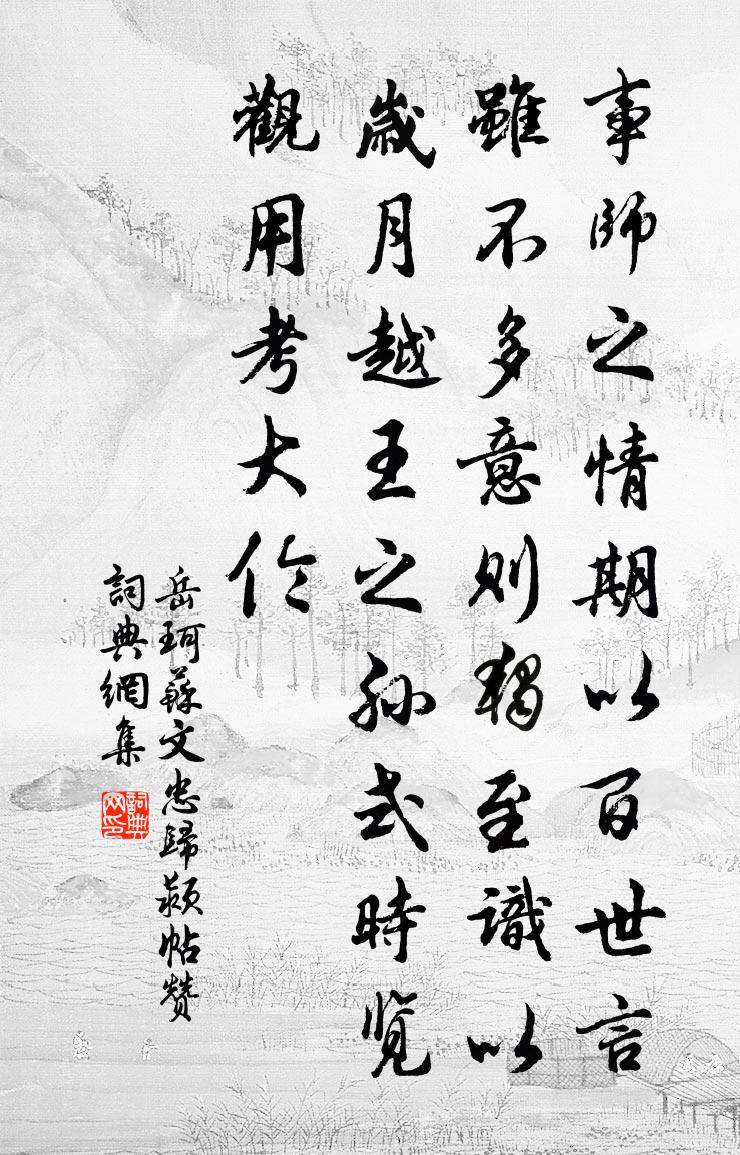 事師之情期以百世言
雖不多意則獨至識以
歲月越王之孫式時览
觀用考大伦
岳珂蘇文忠歸颍帖赞
詞典網集
詞典网印